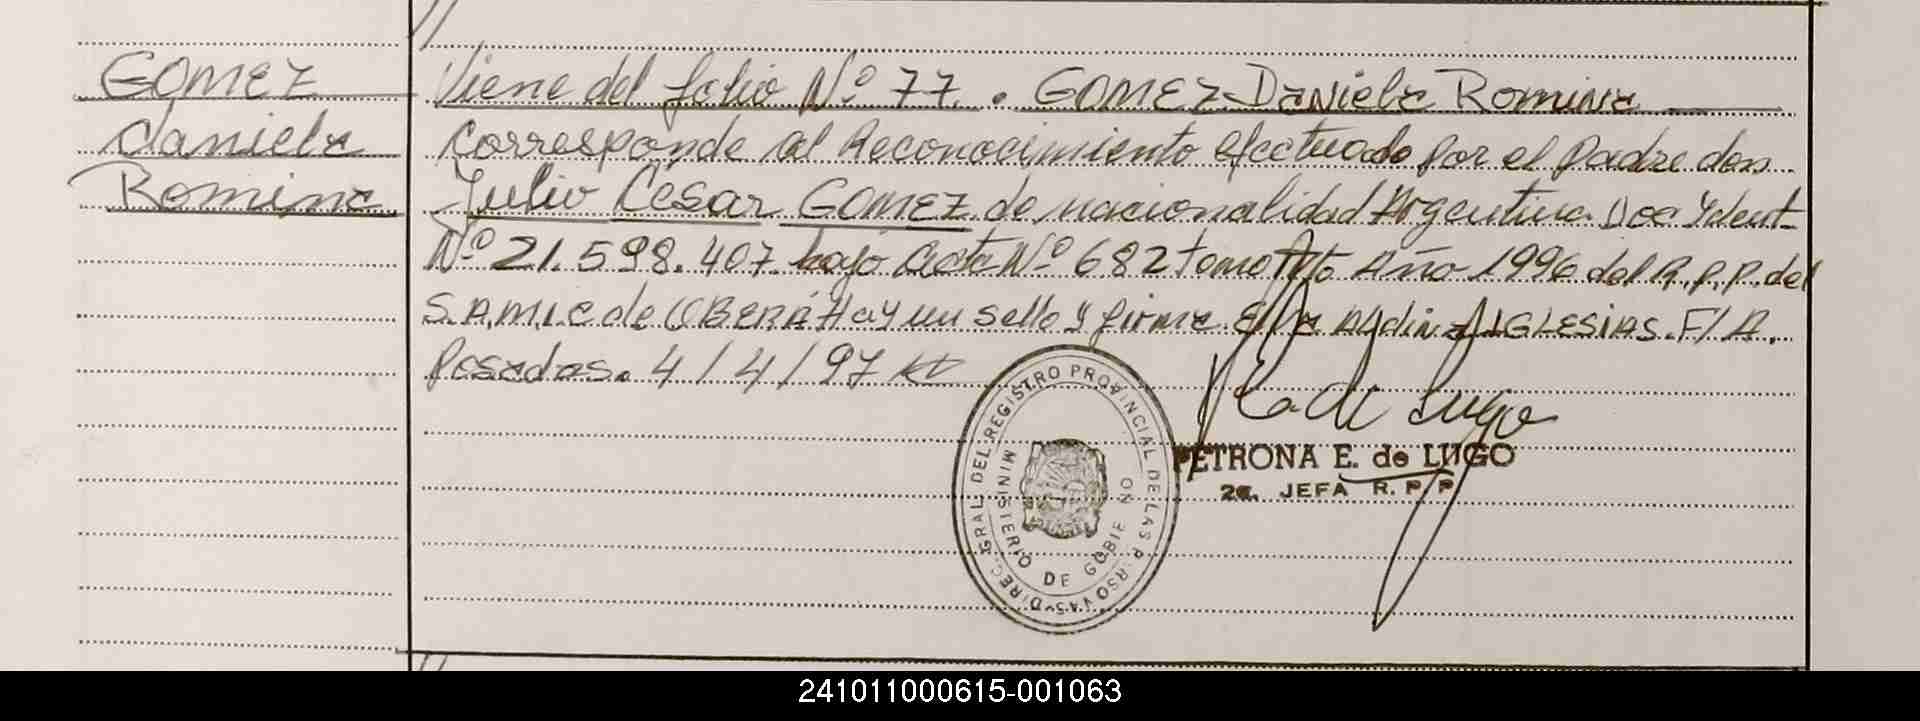 GOMEZ
Daniela
Romina
Viene del folio Nº 77. GOMEZ Daniela Romina
Corresponde al Reconocimiento efectuado por el padre don
Julio César GOMEZ de nacionalidad Argentina Doc Ydent
Nº 21.598.407 bajo Acta Nº 682 tomo Año 1996 del R.P.P. del
S.A.M.I.C de OBERÁ Hay un sello y firma IGLESIAS. F/A.
Posadas. 4/4/97
DIREC. GRAL. DEL REGISTRO PROVINCIAL DE LAS P RSO AS
MINISTERIO DE GOBIE NO
PETRONA E. de LUGO
2a. JEFA R. P. P.
241011000615-001063